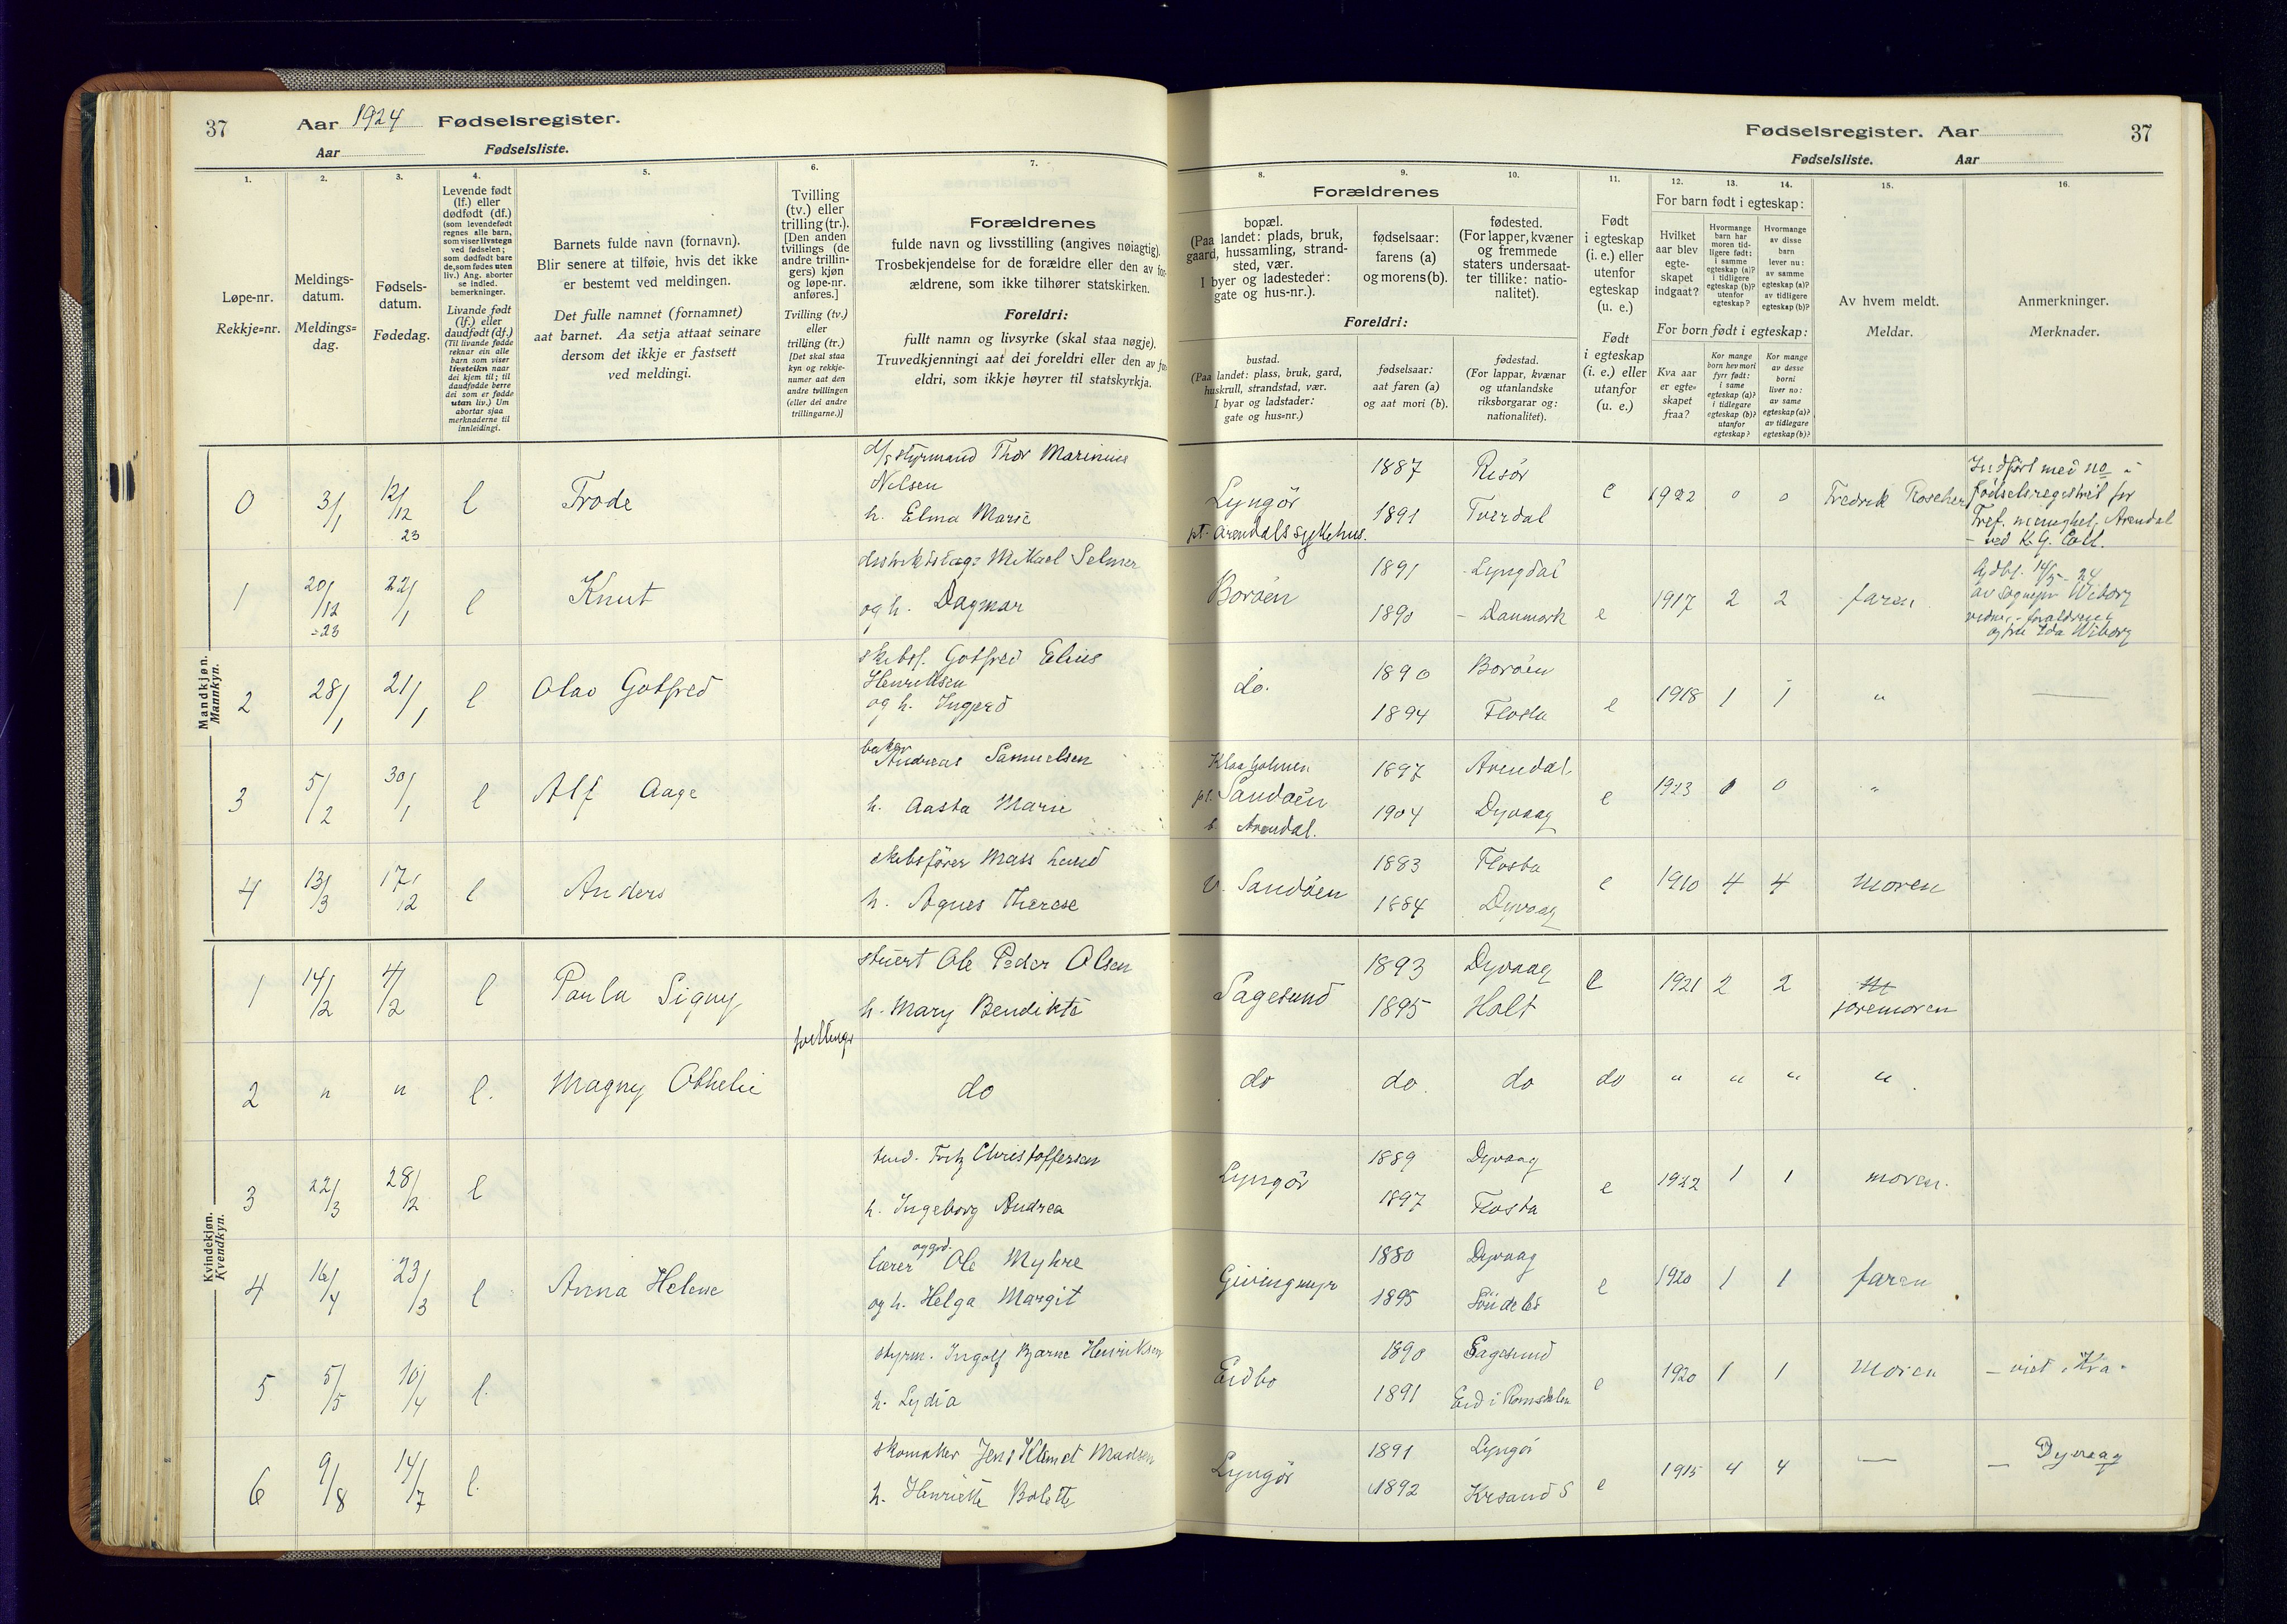 37
Aar 1924 Fødselsregister.
Aar Fødselsliste.
1.
2.
3.
4.
5.
6.
7.
Løpe-nr.
Rekkje=nr.
Meldings-
datum.
Meldings=
dag.
Fødsels-
datum.
Fødedag.
Levende født
(lf.) eller
dødfødt (df.)
(som levendefødt
regnes alle barn,
som viser livstegn
ved fødselen;
som dødfødt bare
de, som fødes uten
liv.) Ang. aborter
se indled.
bemerkninger.
Livande født
(lf.) eller
daudfødt (df.)
(Til livande fødde
reknar ein alle
barn som viser
livsteikn naar
dei kjem til; til
daudfødde berre
dei som er fødde
utan liv.) Um
abortar sjaa
merknaderne til
innleidingi.
Barnets fulde navn (fornavn).
Blir senere at tilføie, hvis det ikke
er bestemt ved meldingen.
Det fulle namnet (fornamnet)
aat barnet. Aa setja attaat seinare
dersom det ikkje er fastsett
ved meldingi.
Tvilling
(tv.) eller
trilling (tr.).
[Den anden
tvillings (de
andre trillin-
gers) kjøn
og løpe-nr.
anføres.]
Tvilling (tv.)
eller
trilling (tr.)
[Det skal staa
kyn og rekkje-
numer aat den
andre tvillingen
(eller dei andre
trillingarne.)]
Forældrenes
fulde navn og livsstilling (angives nøiagtig).
Trosbekjendelse for de forældre eller den av for-
ældrene, som ikke tilhører statskirken.
Foreldri:
fullt namn og livsyrke (skal staa nøgje).
Truvedkjenningi aat dei foreldri eller den av
eldri, som ikkje høyrer til statskyrkja.
Mandkjøn.
Mannkyn.
0 3/1 12/12 23 l Frode
styrmand Thor Marinius
Nilsen
h. Elma Marie
1 20/12 -23 22/1 l Knut
Mikael Selmer
og h. Dagmar
2 28/1 21/1 l Olav Gotfred
skibsf. Gotfred Elius
Henriksen
og h. Ingjerd
3 5/2 30/1 l Alf Aage
baker
Andreas Samuelsen
h. Aasta Marie
4 13/3 17/12 l Anders
skibsfører Mass Lund
h. Agnes Therese
Kvindekjøn.
Kvendkyn.
1 14/2 4/2 l Paula Signy
stuert Ole Peder Olsen
h. Mary Bendikte
tvillinger
2 " " l. Magny Othelie do
3 22/3 28/12 l
Fritz Christoffersen
h. Ingeborg Andrea
4 16/4 23/3 l Anna Helene
lærer og grd. Ole Myhre
og h. Helga Margit
5 5/5 10/4 l.
styrm. Ingolf Bjarne Henriksen
h. Lydia
6 9/8 14/7 l.
skomaker Jens Klemet Madsen
h. Henriette Bolette
Fødselsregister. Aar
37
Fødselsliste. Aar
8.
9.
10.
11.
12.
13.
14.
15.
16.
Forældrenes
bopæl.
(Paa landet: plads, bruk,
gaard, hussamling, strand-
sted, vær.
I byer og ladesteder:
gate og hus-nr.).
fødselsaar:
farens (a)
og morens (b).
fødested.
(For lapper, kvæner
og fremmede
staters undersaat-
ter tillike: natio-
nalitet).
Foreldri:
bustad.
(Paa landet: plass, bruk, gard,
huskrull, strandstad, vær.
I byar og ladstader:
gate og hus=nr.)
fødselsaar:
aat faren (a)
og aat mori (b).
fødestad.
(For lappar, kvænar
og utanlandske
riksborgarar og:
nationalitet).
Født
i egteskap
(i. e.) eller
utenfor
egteskap
(u. e.)
Født
i egteskap
(i. e.) eller
utanfor
(u. e.)
For barn født i egteskap:
Hvilket
aar blev
egte-
skapet
indgaat?
Hvormange
barn har
moren tid-
ligere født:
i samme
egteskap (a)?
i tidligere
egteskap (b)?
utenfor
egteskap?
Hvormange
av disse
barn
lever nu:
av samme
egteskap (a)?
av tidligere
egteskap (b)?
For born født i egteskap:
Kva aar
er egte=
skapet
fraa?
Kor mange
born hev mori
fyrr født:
i same
egteskap (a)?
i tidlegare
egteskap (b)?
utanfor
egteskap?
Kor mange
av desse
borni
liver no:
av same
egteskap (a)?
av tidlegare
egteskap (b)?
Av hvem meldt.
Meldar.
Anmerkninger.
Merknader.
Lyngör
pt. Arendals sykehus.
1887 Risör
1891 Tverdal
e 1922 0 0 Fredrik Roscher
Indført med no i
Fødselsregistret for
Tref. menighet, Arendal
- ved K. G. Coll.
Boröen
1891 Lyngdal
1890 - Danmark
e 1917 2 2 faren
14/5 - 24
av sognepr Wiborg
og fru Ida Wiborg
do.
1890 Boröen
1894 Flosta
e 1918 1 1 "
Klaaholmen
pt. Sandöen
Arendal.
1897 Arendal
1904 Dyvaag
e 1923 0 0 "
V. Sandöen
1883 Flosta
1884 Dyvaag
e 1910 4 4 moren
Sagesund
1893 Dyvaag
1895 Holt
e 1921 2 2
joremoren
do do do do " " " "
Lyngör
1889 Dyvaag
1897 Flosta
e 1922 1 1 moren.
Givingmyr
1880 Dyvaag
1895 Söndeled
e 1920 1 1 faren
Eidbo
1890 Sagesund
1891 Eid i Romsdalen
e 1920 1 1 moren - viet i Kra.
Lyngör
1891 Lyngör
1892 Krsand S
e 1915 4 4 — - Dyvaag